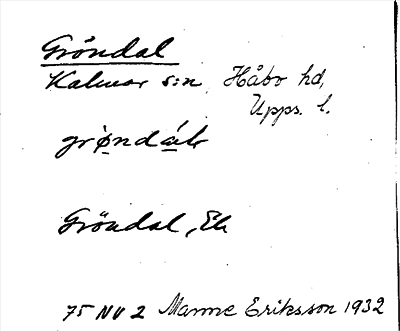 Gröndal
Kalmar s:n, Håbo hd,
Upps. l.
Gröndal, Eh
75 NV 2 Manne Eriksson 1932